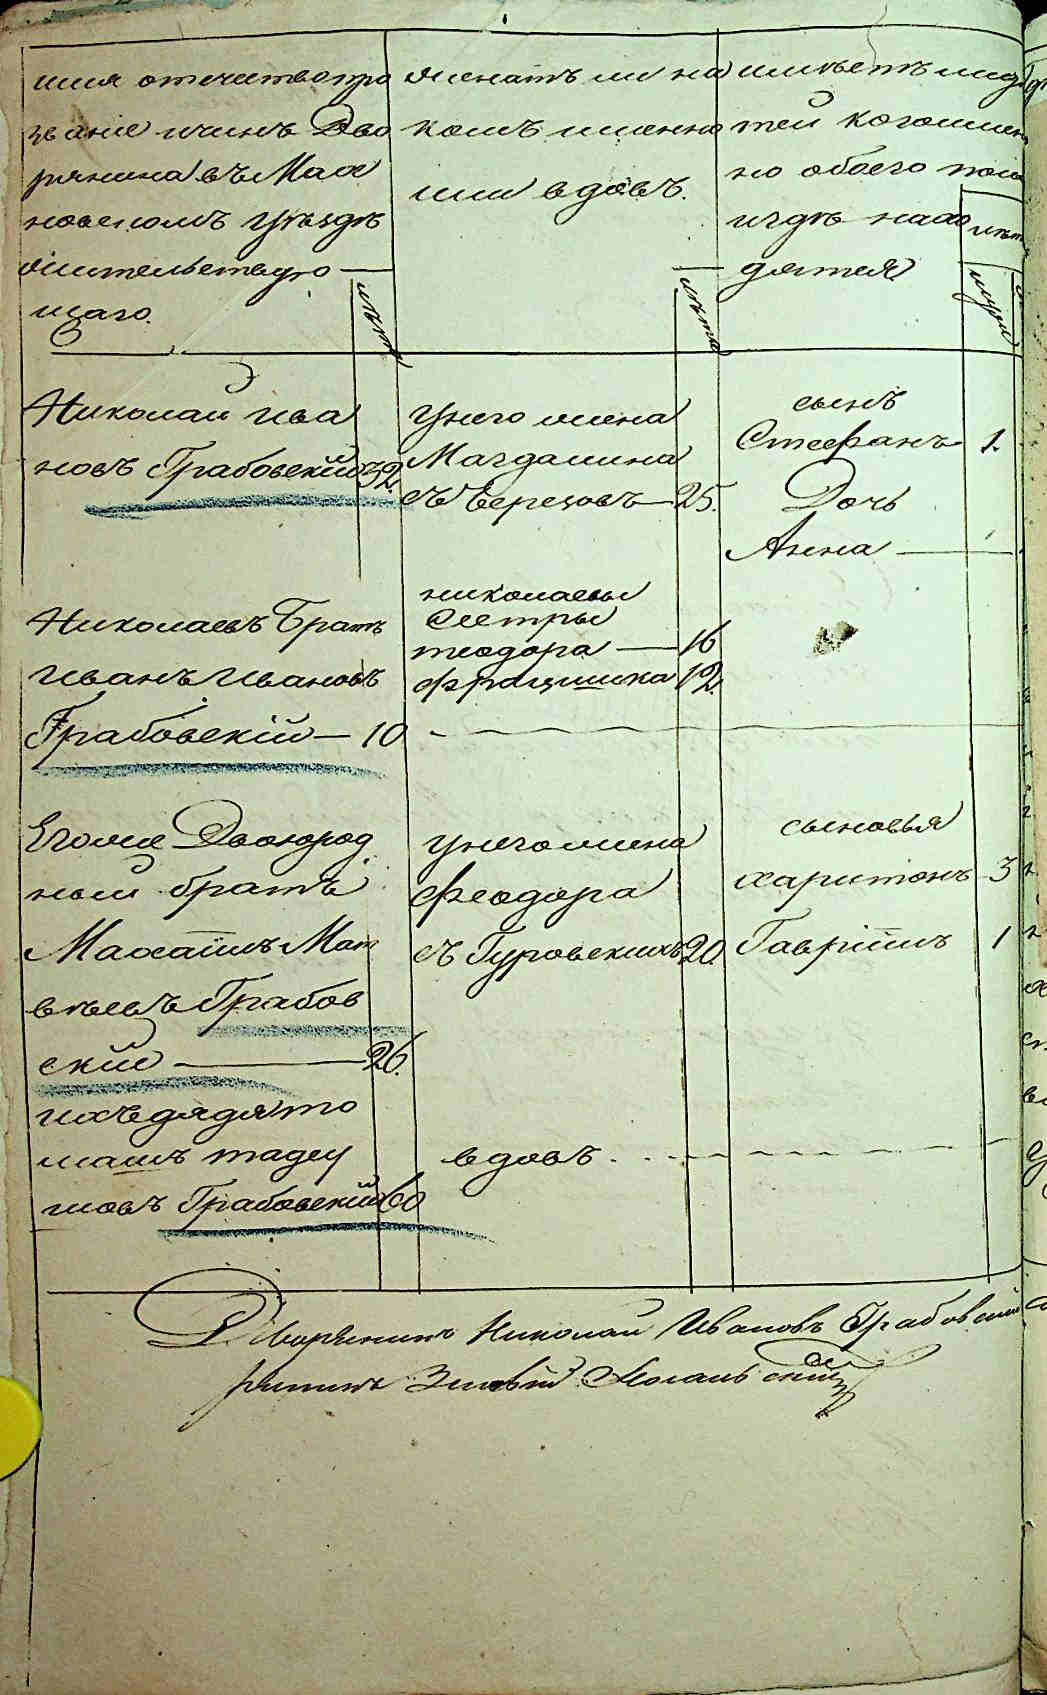 имя отечество про
звание ичинъ Дво
рянина въ Мах
новскомъ уѣздѣ
жительствую
щаго.
лѣта
женатъ ли на
комъ именно
или вдовъ.
лѣта
имѣетъ ли дѣ
тей когоимен
но обоего пола
игдѣ нахо
дятся
лѣта
муж
Николай Ива
новъ Грабовскій 32.
унего жена
Магдалина
съ Березовъ 25.
сынъ
Стефанъ 1.
Дочь
Анна
Николаевъ Братъ
Иванъ Ивановъ
Грабовскій 10
николаевы
Сестры
теодора 16
Францишка 12
Егоже Двоюрод
ный братъ
Махаилъ Мат
вѣевъ Грабов
скій 26.
унегожена
Феодора
съ Гуровскихъ 20.
сыновья
харитонъ 3
Гавріилъ 1
ихъ дядя то
машъ тадеу
шовъ Грабовскій 60
вдовъ
Дворянинъ Николай Ивановъ Грабовскій